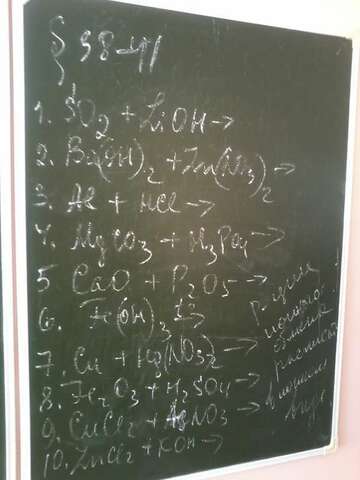 § 38-41
1. SO2 + LiOH →
2. Ba(OH)2 + Zn(NO3)2 →
3. Al + HCl →
4. MgCO3 + H3PO4 →
5. CaO + P2O5 →
6. Fe(OH)3 →
7. Cu + Hg(NO3)2 →
8. Fe2O3 + H2SO4 →
9. CuCl2 + AgNO3 →
10. ZnCl2 + KOH →
Р-ции
ионного
обмена
расписать
в ионном
виде.